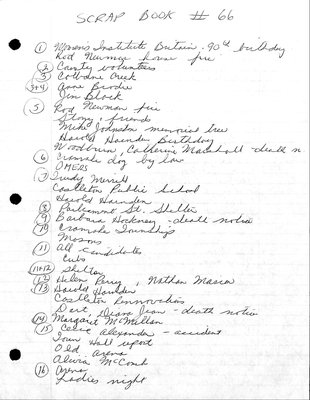 SCRAP BOOK # 66
① Women's Institute Britain - 90th birthday
Rod Newman house fire
② County volunteers
③ Colborne Creek
3+4 Anne Brodie
Jim Block
⑤ Rod Newman fire
Story, friends
Mike Johnston memorial tree
Harold Harnden Birthday
Woodburn, Catherine Marshall - death n
⑥ Cramahe dog by law
OMERS
⑦ Trudy Merrill
Castleton Public School
Harold Harnden
⑧ Parliament St. Shelter
⑨ Barbara Hockney - death notice
⑩ Cramahe Township
Masons
⑪ All candidates
Cubs
11+12 Shelter
⑫ Helen Perry, Nathan Mason
⑬ Harold Harnden
Castleton Rennovations
Dert, Diana Jean - death notice
⑭ Margaret McMillan
⑮ Celie Alexander - accident
Town Hall report
Old arena
Alivia McComb
⑯ Arena
Ladies night